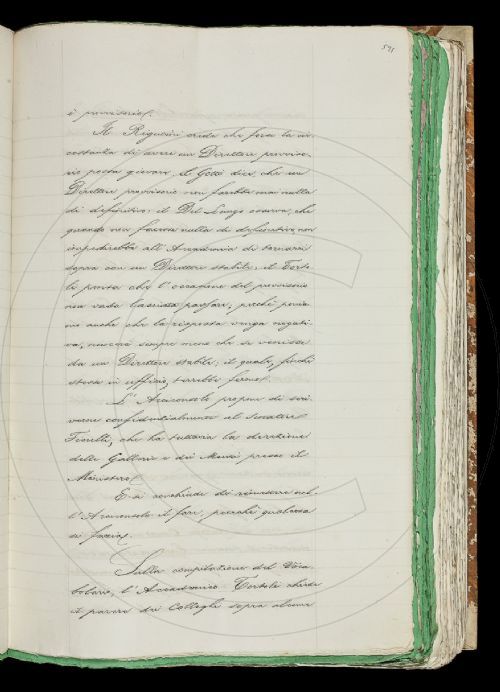 571
è provvisorio.
Il Rigutini crede che forse la cir-
costanza di avere un Direttore provviso-
rio possa giovare; il Gotti dice, che un
Direttore provvisorio non farebbe mai nulla
di definitivo: il Del Lungo osserva, che
quando non facesse nulla di definitivo, non
impedirebbe all'Accademia di tornarci
sopra con un Direttore stabile: il Torto-
li pensa che l'occasione del provvisorio
non vada lasciata passare, perchè ponia-
mo anche che la risposta venga negati-
va, nuocerà sempre meno che se venisse
da un Direttore stabile; il quale, finchè
stesse in ufficio, terrebbe fermo.
L'Arciconsolo propone di scri-
vere confidenzialmente al Senatore
Fiorelli, che ha tuttora la direzione
delle Gallerie e dei Musei presso il
Ministero.
E si conchiude di rimettere nel-
l'Arciconsolo il fare, purchè qualcosa
si faccia.
Sulla compilazione del Voca-
bolario, l'Accademico Tortoli chiede
il parere dei Colleghi sopra alcune